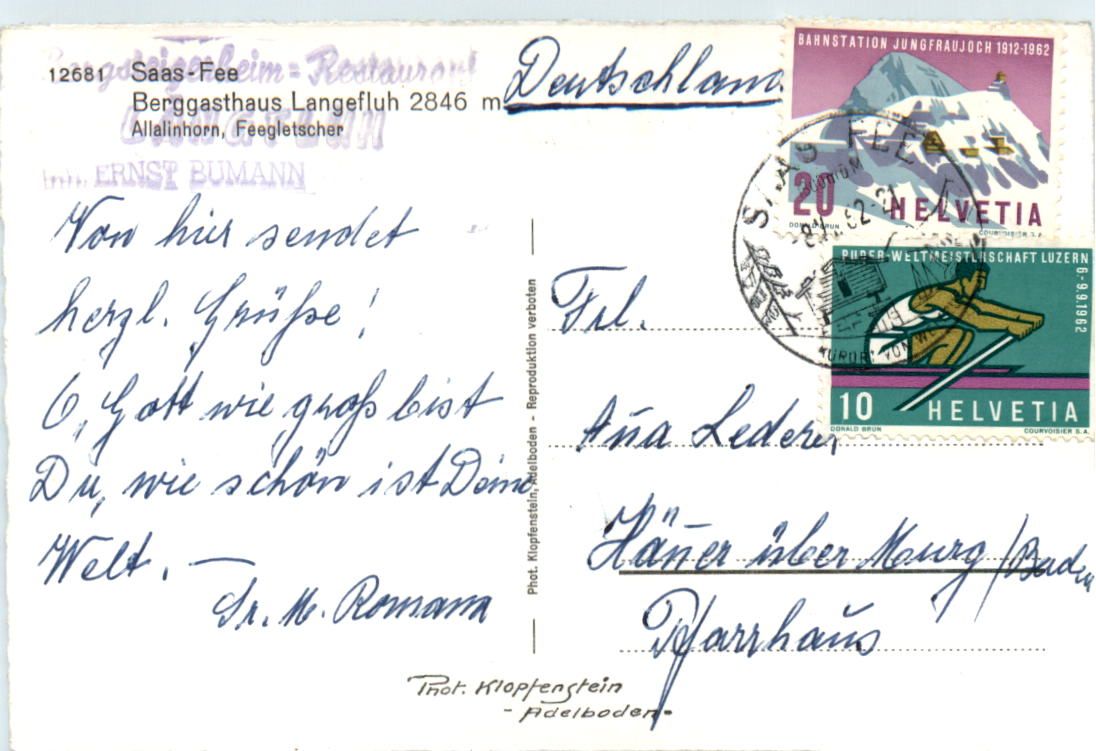 12681 Saas-Fee
Berggasthaus Langefluh 2846 m
Allalinhorn, Feegletscher
Bergsteigerheim-Restaurant
LANGFLUH
Inh. ERNST BUMANN
Deutschland
BAHNSTATION JUNGFRAUJOCH 1912-1962
20 HELVETIA
DONALD BRUN COURVOISIER S.A.
SAAS FEE
RUDER-WELTMEISTERSCHAFT LUZERN
6.-9.9.1962
10 HELVETIA
DONALD BRUN COURVOISIER S.A.
KURORT VON
Von hier sendet
herzl. Grüße!
O, Gott wie groß bist
Du, wie schön ist Deine
Welt. —
Sr. M. Romana
Phot. Klopfenstein, Adelboden - Reproduktion verboten
Frl.
Anna Lederer
Hänner über Murg/Baden
Pfarrhaus
Phot. Klopfenstein
- Adelboden -